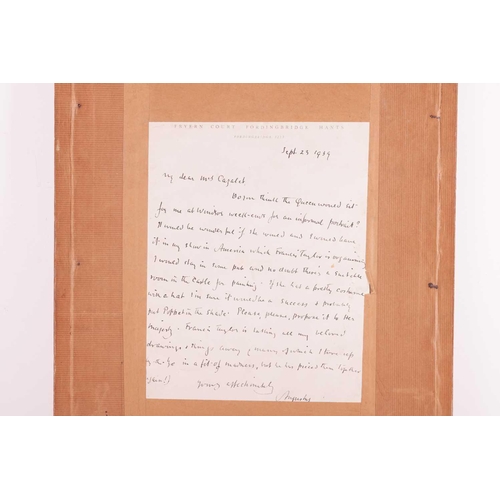 FRYERN COURT, FORDINGBRIDGE, HANTS
Sept 23 1939
My dear Mrs Cazalet
Do you think the Queen would sit
for me at Windsor week-ends for an informal portrait?
It would be wonderful if she would and I would have
it in my show in America which Francis Taylor is organising
I would stay in some pub and no doubt there's a suitable
room in the castle for painting. If she had a pretty costume
with a hat I'm sure it would be a success & probably
put in the shade. Please, please, propose it to Her
Majesty. Francis Taylor is taking all my
drawings & things away of which I tore up
in a fit of madness, but he has pieced them together
again!)
yours affectionately
Augustus